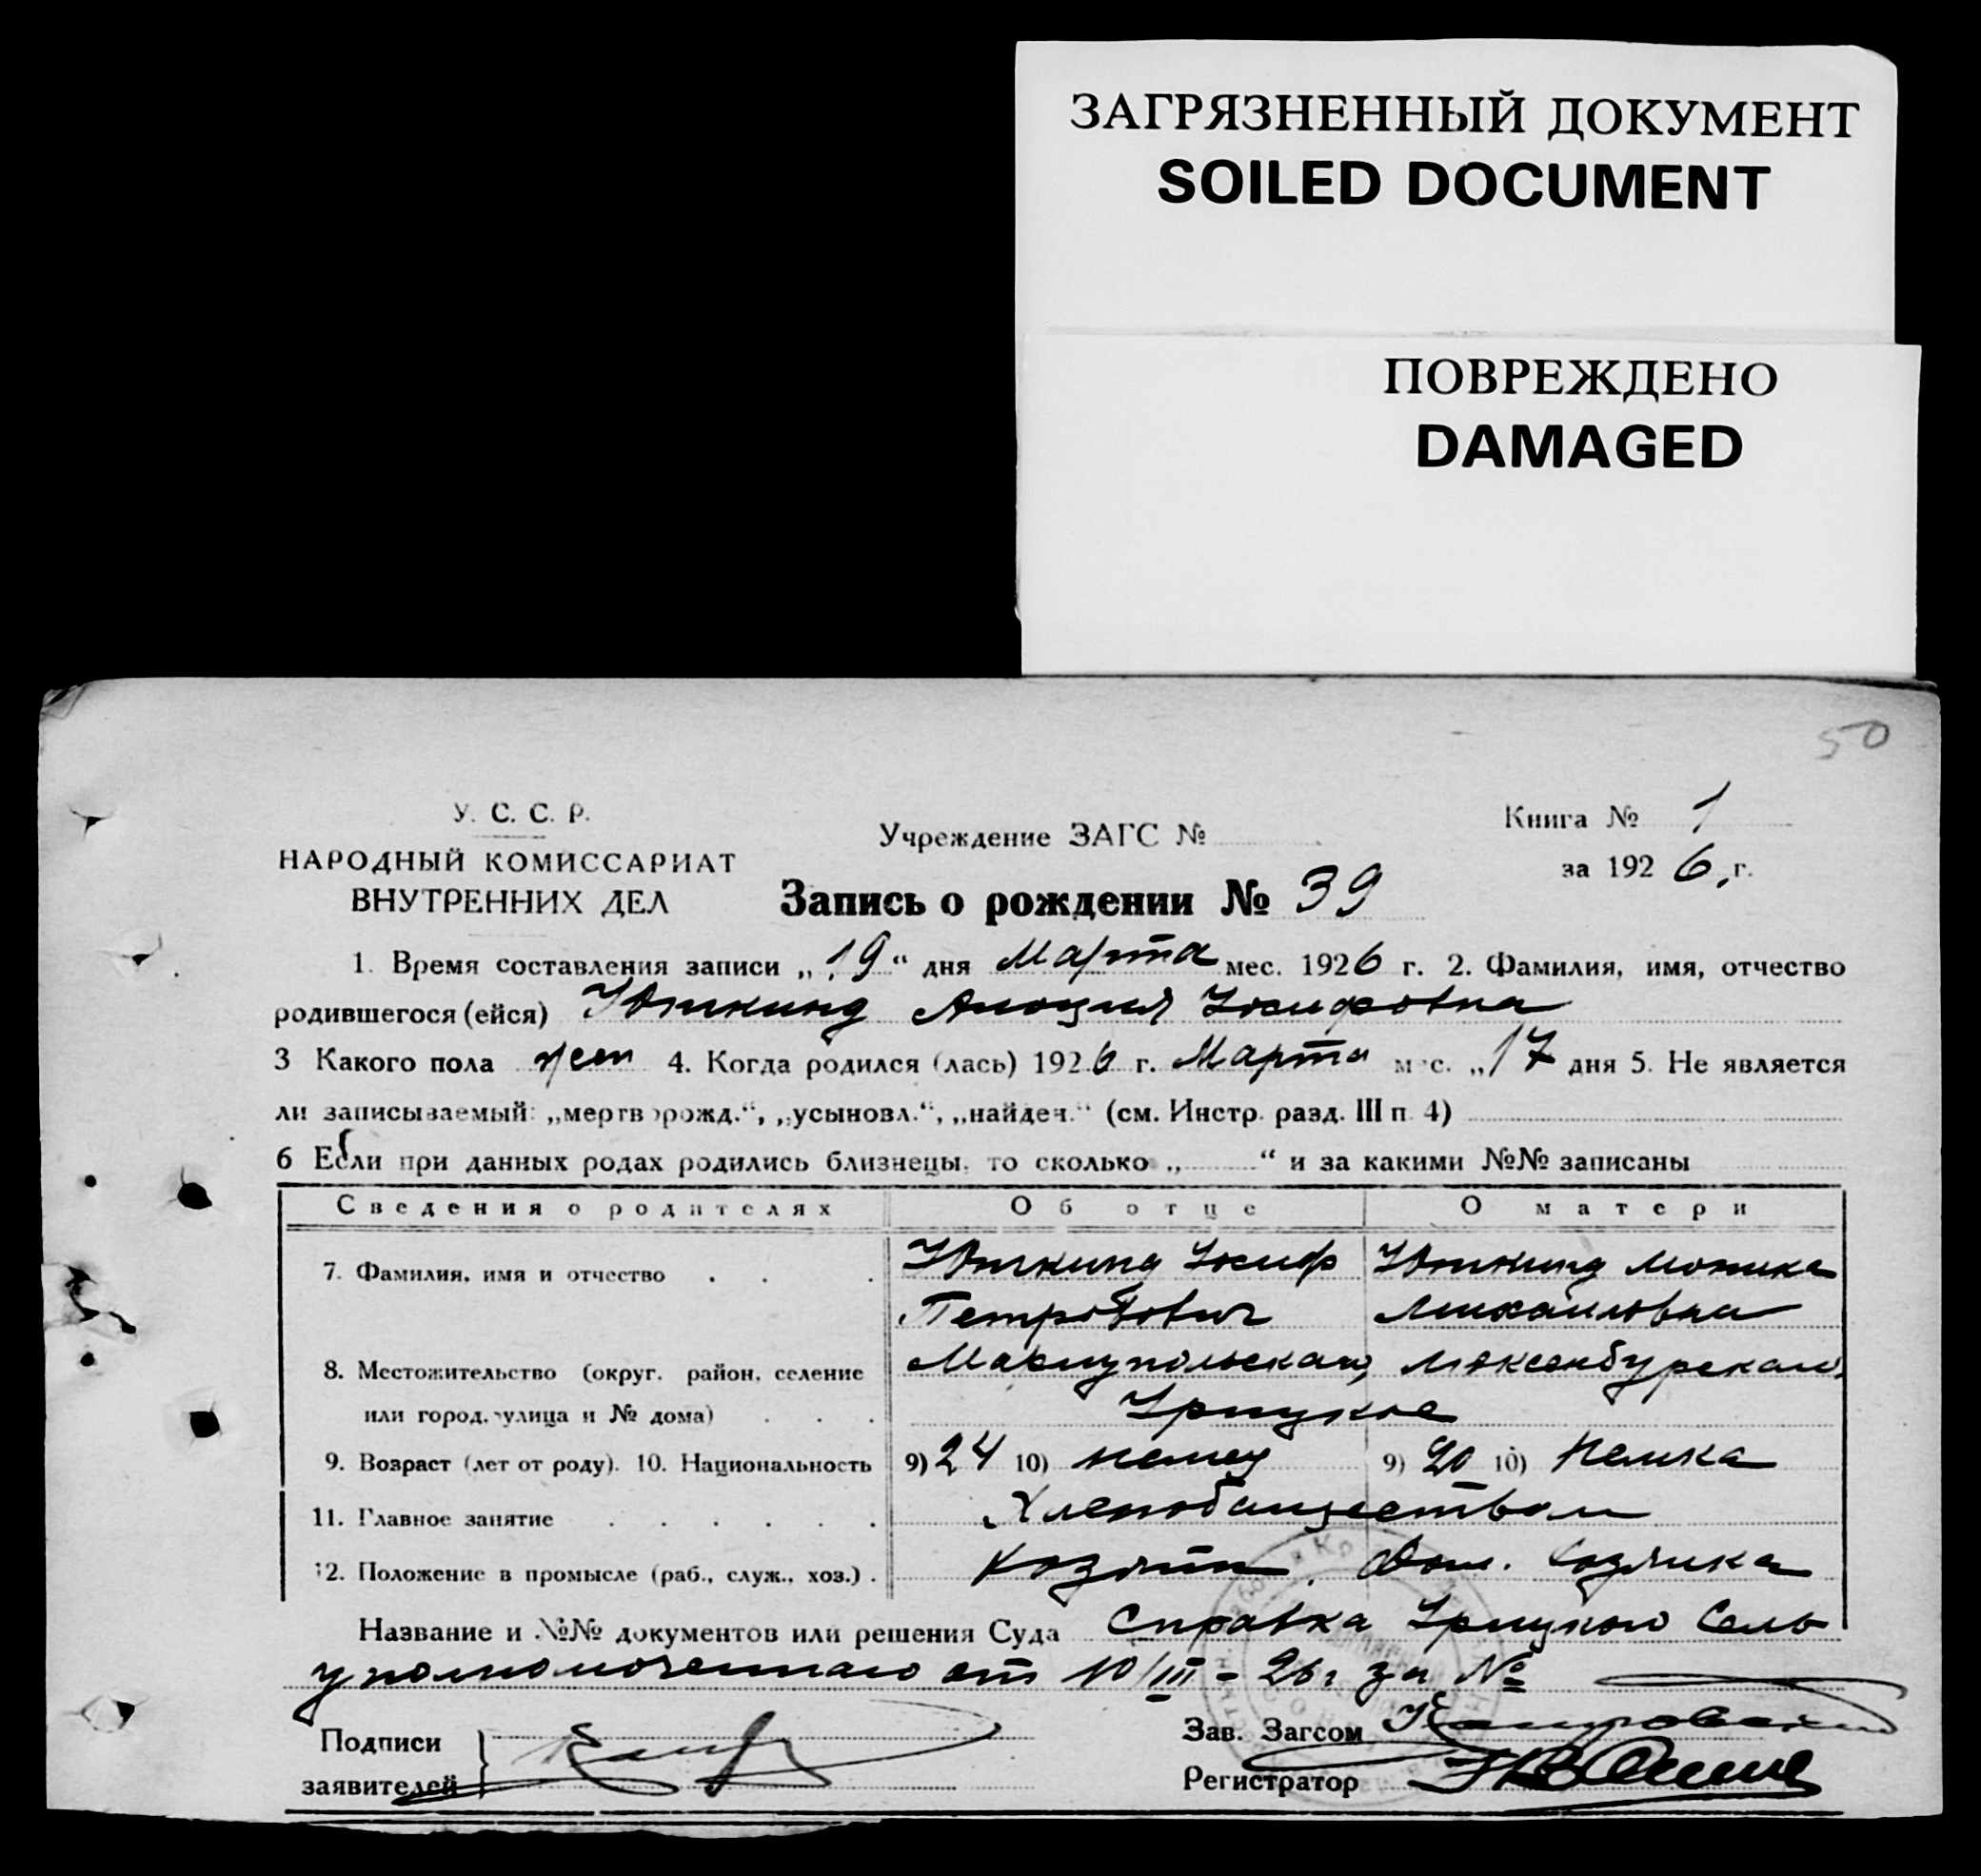 ЗАГРЯЗНЕННЫЙ ДОКУМЕНТ
SOILED DOCUMENT
ПОВРЕЖДЕНО
DAMAGED
50
У. С. С. Р.
НАРОДНЫЙ КОМИССАРИАТ
ВНУТРЕННИХ ДЕЛ
Учреждение ЗАГС №
Книга № 1
за 1926 г.
Запись о рождении № 39
1. Время составления записи „19“ дня Марта мес. 1926 г. 2. Фамилия, имя, отчество
родившегося (ейся) Иосифовна
3 Какого пола жен 4. Когда родился (лась) 1926 г. Марта мес. „17 дня 5. Не является
ли записываемый: „мертворожд.“, „усыновл.“, „найден.“ (см. Инстр. разд. III п. 4)
6 Если при данных родах родились близнецы, то сколько „ “ и за какими №№ записаны
Сведения о родителях Об отце О матери
7. Фамилия, имя и отчество Иосиф Моника
Петрович Михайловна
8. Местожительство (округ, район, селение Мариупольского, Люксенбургского,
или город, улица и № дома) Урицкое
9. Возраст (лет от роду). 10. Национальность 9) 24 10) немец 9) 20 10) Немка
11. Главное занятие Хлебопашеством
12. Положение в промысле (раб., служ., хоз.) Хозяин. Дом. Хозяйка
Название и №№ документов или решения Суда Справка Урицкого Сель
уполномоченного от 10/III - 26 г за №
Подписи
заявителей
Зав. Загсом
Регистратор